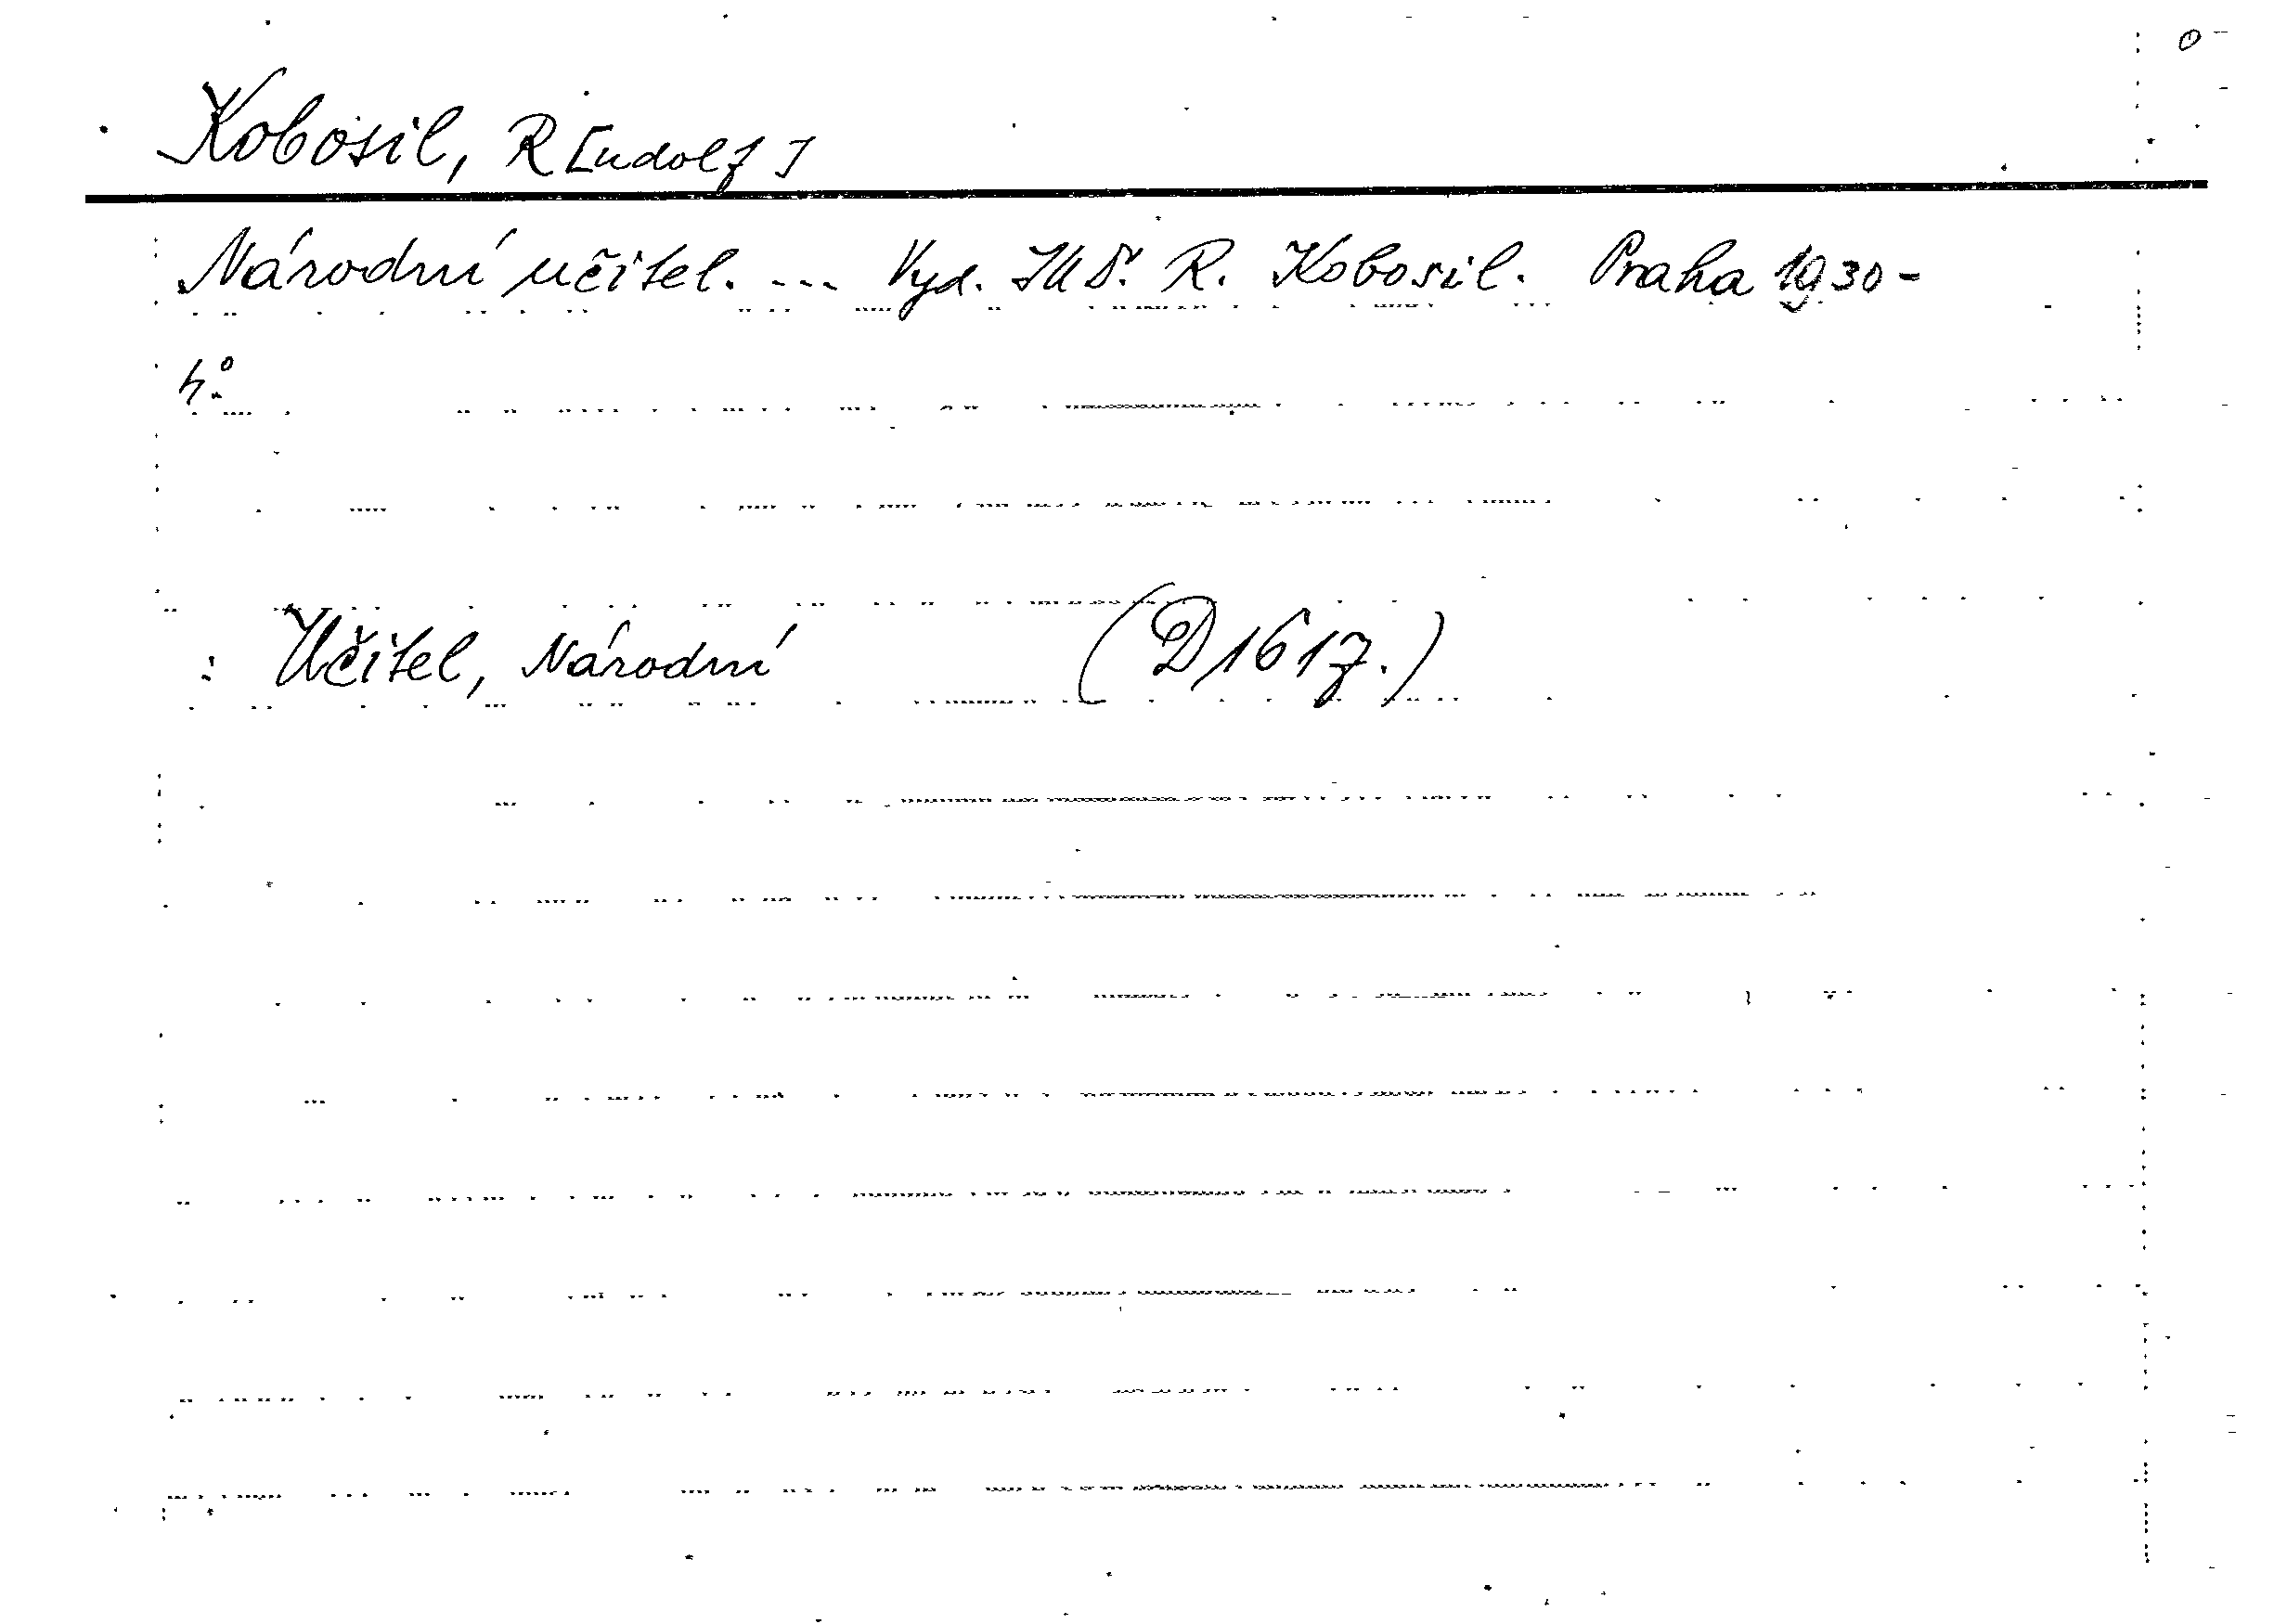 Kobosil, R[udolf]
Národní učitel. ... Vyd. R. Kobosil. Praha 1930-
4°
: Učitel, Národní (D 1617.)